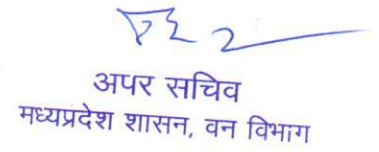 अपर सचिव
मध्यप्रदेश शासन, वन विभाग